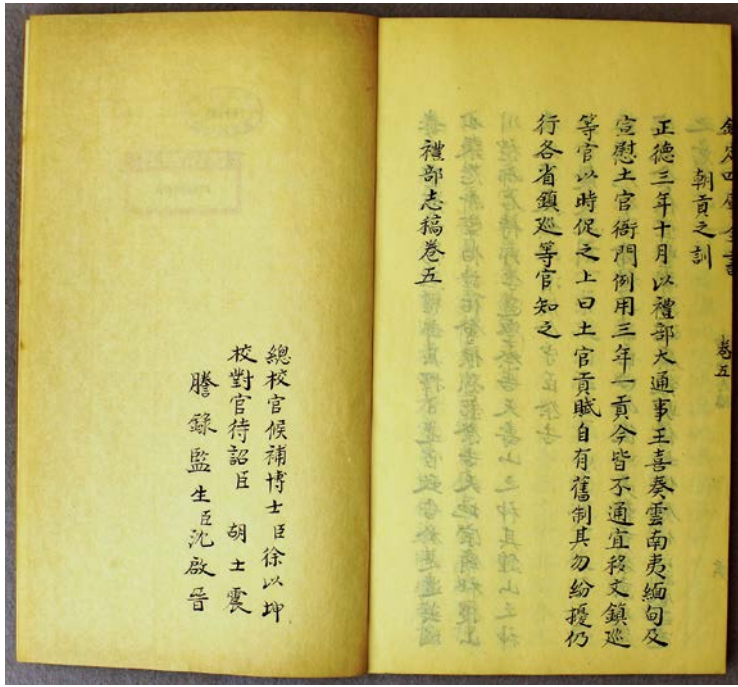 欽定四庫全書
卷五
朝貢之訓
正德三年十月以禮部大通事王喜奏雲南夷緬甸及
宣慰土官衙門例用三年一貢今皆不通宜移文鎮廵
等官以時促之上曰土官貢賦自有舊制其勿紛擾仍
行各省鎮廵等官知之
禮部志稿卷五
總校官候補博士臣徐以坤
校對官待詔臣胡士震
謄錄監生臣沈啟晉